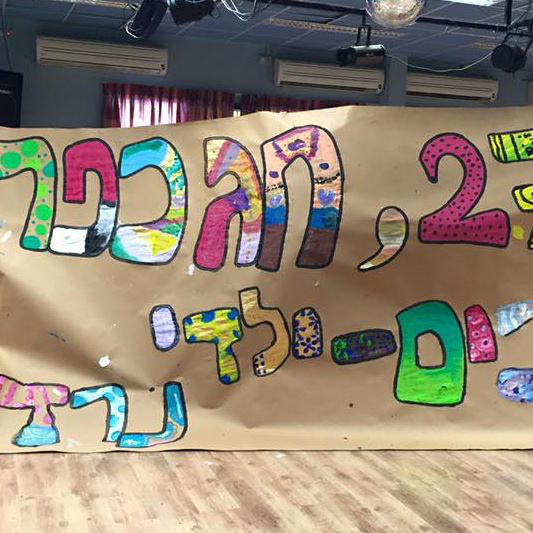 2, חג כפר
ים-ילדי
נרד